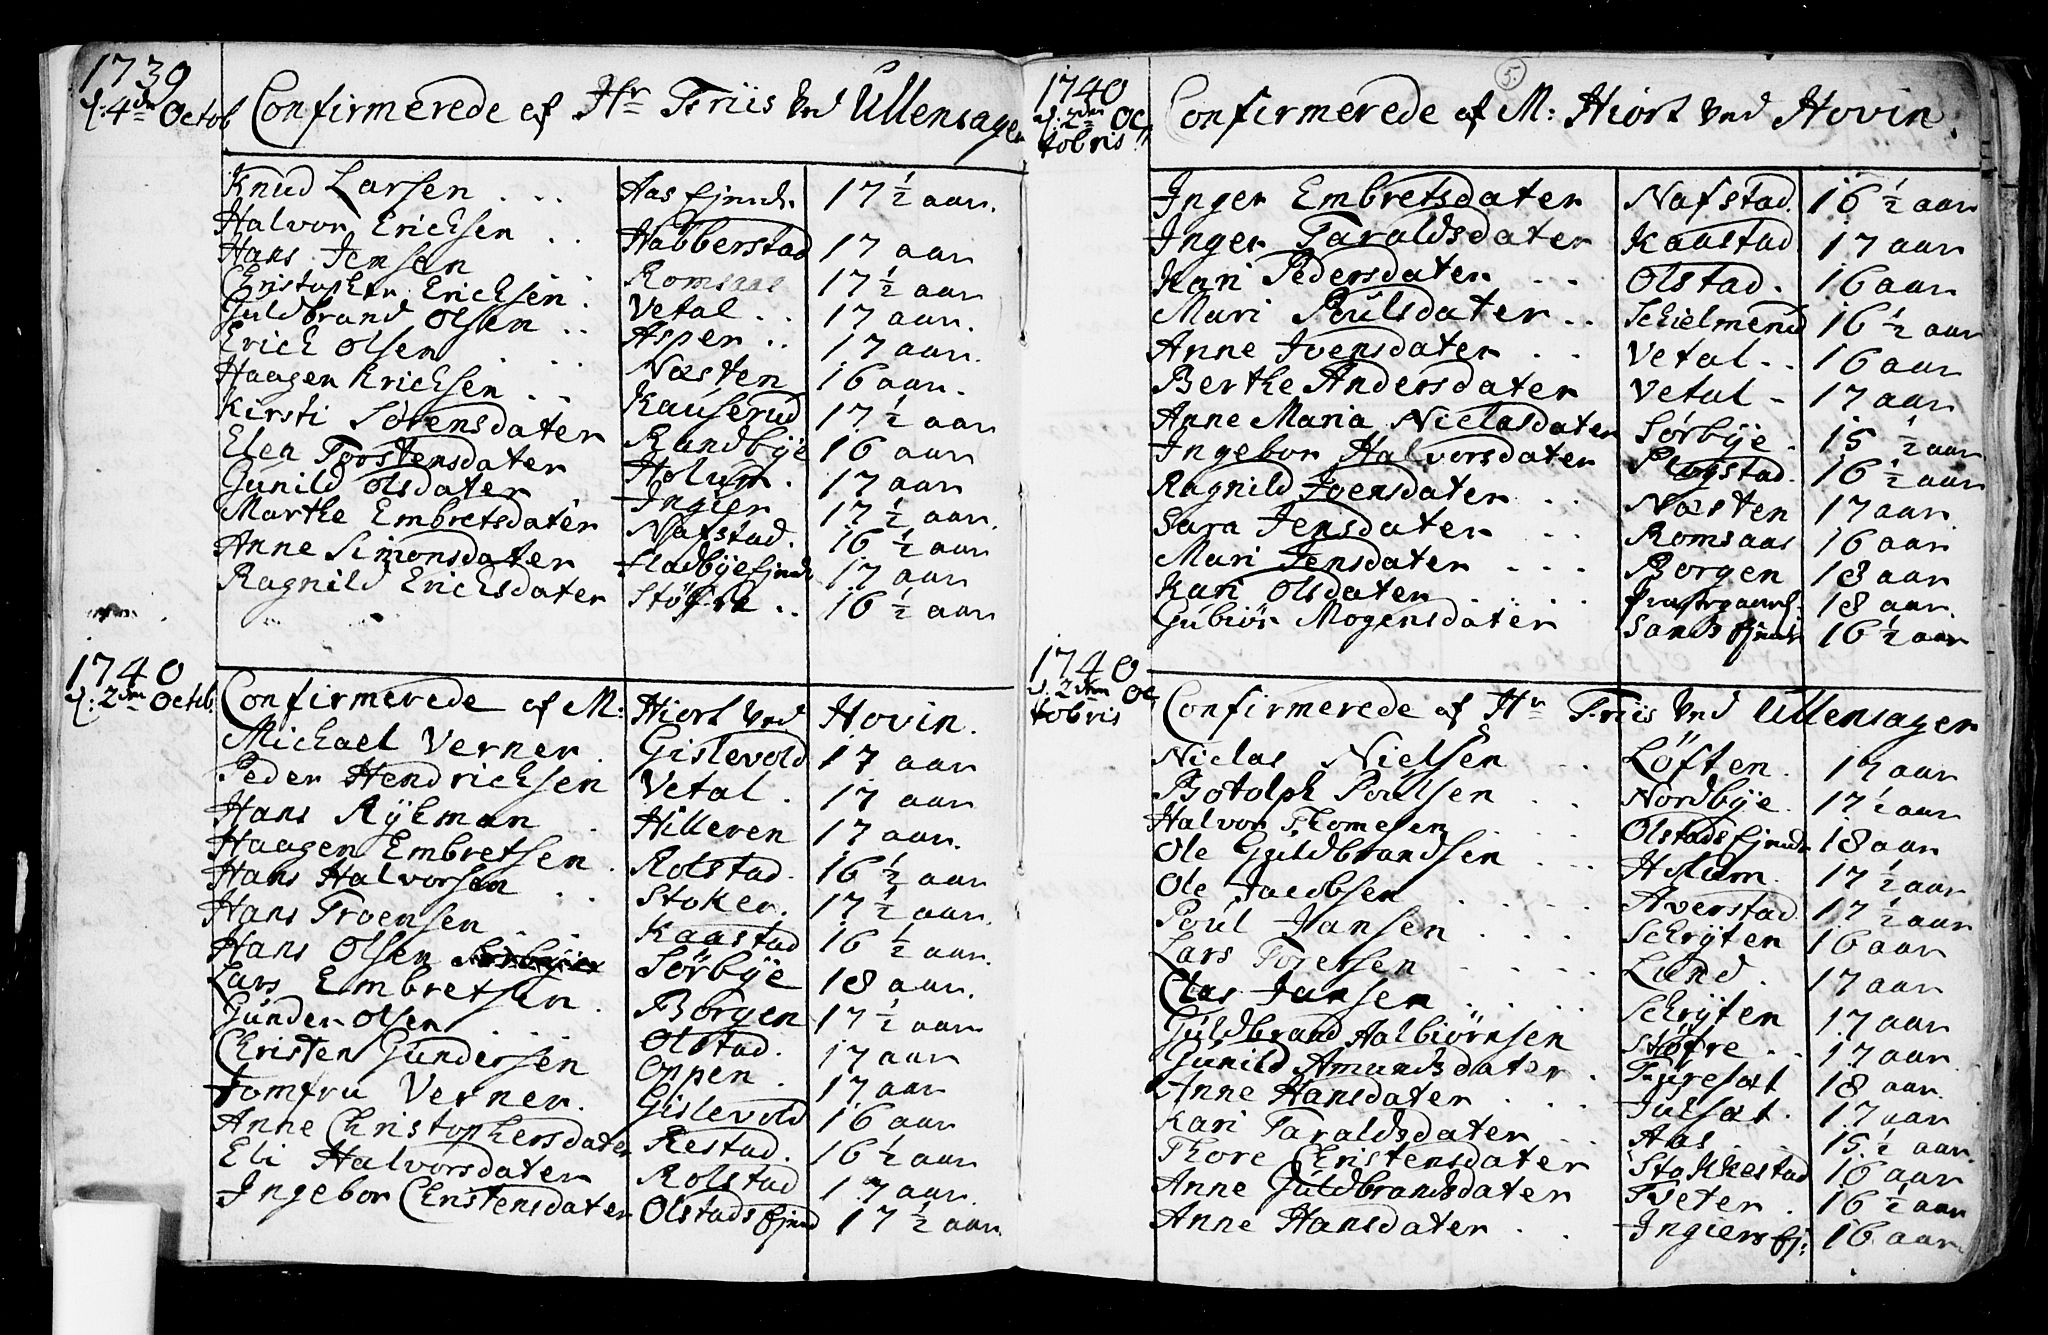 1739
d: 4de Octob
Confirmerede af Hr Friis ved Ullensager
Knud Larsen . . . Aas Ejend. 17 ½ aar.
Halvor Ericksen . . Habberstad 17 aar
Hans Jensen . . Romsaas 17 ½ aar
Christopher Ericksen . Vetal . . 17 aar.
Guldbrand Olsen . . Asper . . 17 aar.
Erich Olsen . . . Næsten 16 aar.
Haagen Ericksen . . Kauserud 17 ½ aar
Kirsti Sørensdater Randbÿe 16 aar
Elen Torstensdater Holum . 17 aar
Gunild Olsdater Ingier 17 ½ aar.
Marthe Embretsdater Nafstad. 16 ½ aar
Anne Simonsdater Fladbÿe Ejend. 17 aar
Ragnild Ericksdater Støfre . . 16 ½ aar
1740
d: 2den Octob.
Confirmerede af M: Hiort ved Hovin.
Michael Verner . Gislevold 17 aar
Peder Hendrichsen Vetal . 17 aar
Hans Rÿkman . Hilleren 17 aar.
Haagen Embretsen . Rolstad . 16 ½ aar
Hans Halvorsen . . Stoker. 17 ½ aar.
Hans Troensen . . Kaastad 16 ½ aar.
Hans Olsen Sørbÿe 18 aar.
Lars Embretsen . Borgen 17 ½ aar
Gunder Olsen . . . Olstad. 17 aar
Christen Gundersen Oppen . 17 aar
Jomfru Verner. Gislevold 16 aar
Anne Christophersdater Restad. 16 ½ aar
Eli Halvorsdater Rolstad 17 aar.
Ingebor Christensdater Olstads Ejend 17 ½ aar.
5.
1740
d. 2den Oc
tobris
Confirmerede af M: Hiort ved Hovin.
Inger Embretsdater Nafstad. 16 ½ aar
Inger Taraldsdater Kaastad 17 aar
Kari Pedersdater . . Olstad. 16 aar
Mari Poulsdater . . Schielmerud 16 ½ aar
Anne Iversdater . . Vetal . . 16 aar
Berthe Andersdater Vetal - 17 aar
Anne Maria Niclasdater Sørbÿe . 15 ½ aar
Ingebor Halvorsdater Plogstad. 16 ½ aar
Ragnild Iversdater . . Næsten 17 aar.
Sara Jensdater . . Romsaas 16 aar
Mari Jensdater . . . Borgen 18 aar
Kari Olsdater . . . . Præstegaard. 18 aar.
Gubiør Mogensdater Sands Ejend. 16 ½ aar
1740
d. 2den Oc
tobris
Confirmerede af Hr Friis ved Ullensager
Niclas Nielsen . . Løften . 17 aar
Botolph Poulsen . . Nordbÿe . 17 ½ aar
Halvor Thomesen . . Olstads Ejend. 18 aar
Ole Guldbrandsen . . . Holum . 17 ½ aar
Ole Jacobsen . . . . Averstad. 17 ½ aar
Poul Hansen . . . Schrÿten 16 aar
Lars Torersen . . . . Lund . 17 aar
Clas Jansen . . . . Schrÿten 17 aar
Guldbrand Halbiørnsen Støfre . . 17 aar
Gunild Amundsdater . Furesæt 18 aar.
Anne Hansdater . . . Julsæt. 17 aar
Kari Taraldsdater . . Aas . . 15 ½ aar.
Thore Christensdater Stokkestad 16 aar
Anne Guldbrandsdater Tveter . 16 ½ aar
Anne Hansdater . . Ingiers Ej: 16 aar.